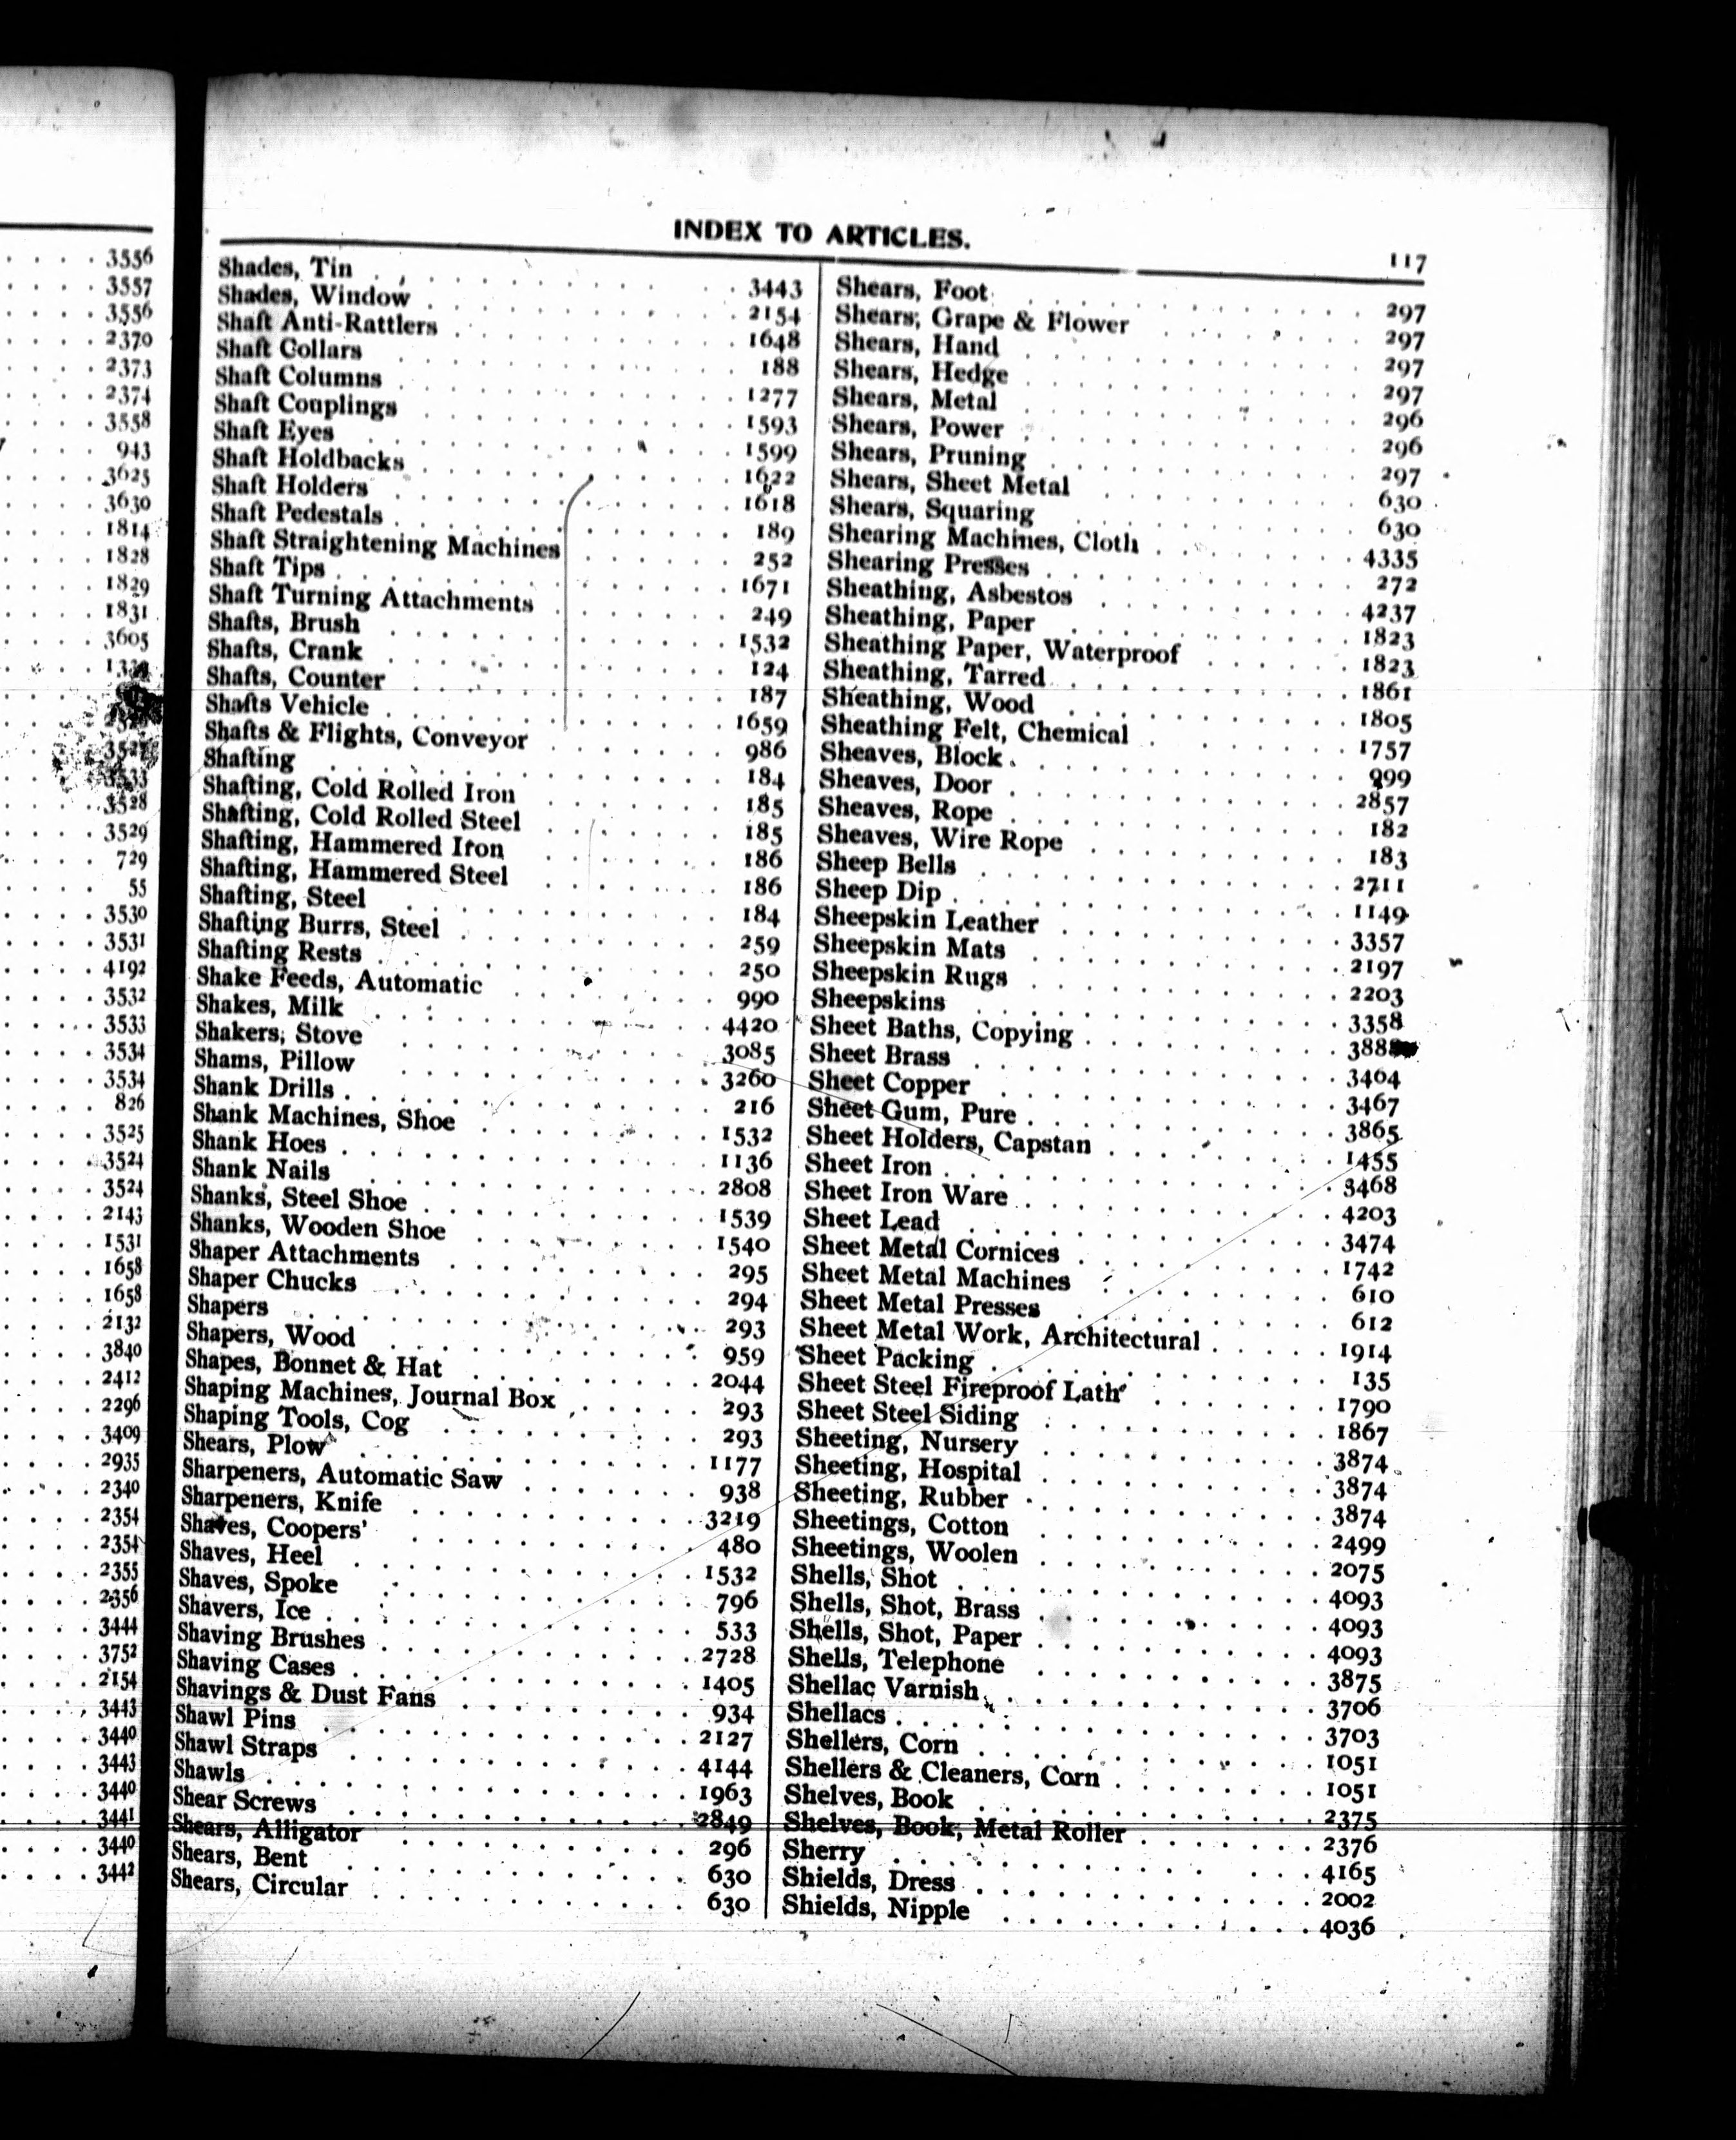 3556
3557
3556
2370
2373
2374
3558
943
3625
3630
1814
1828
1829
1831
3605
3528
3529
729
55
3530
3531
4192
3532
3533
3534
3534
826
3525
3524
3524
2143
1531
1658
1658
2132
3840
2412
2296
3409
2935
2340
2354
2354
2355
2356
3444
3752
2154
3443
3440
3443
3440
3441
3440
3442
INDEX TO ARTICLES. 117
Shades, Tin 3443
Shades, Window 2154
Shaft Anti-Rattlers 1648
Shaft Collars 188
Shaft Columns 1277
Shaft Couplings 1593
Shaft Eyes 1599
Shaft Holdbacks 1622
Shaft Holders 1618
Shaft Pedestals 189
Shaft Straightening Machines 252
Shaft Tips 1671
Shaft Turning Attachments 249
Shafts, Brush 1532
Shafts, Crank 124
Shafts, Counter 187
Shafts Vehicle 1659
Shafts & Flights, Conveyor 986
Shafting 184
Shafting, Cold Rolled Iron 185
Shafting, Cold Rolled Steel 185
Shafting, Hammered Iron 186
Shafting, Hammered Steel 186
Shafting, Steel 184
Shafting Burrs, Steel 259
Shafting Rests 250
Shake Feeds, Automatic 990
Shakes, Milk 4420
Shakers, Stove 3085
Shams, Pillow 3260
Shank Drills 216
Shank Machines, Shoe 1532
Shank Hoes 1136
Shank Nails 2808
Shanks, Steel Shoe 1539
Shanks, Wooden Shoe 1540
Shaper Attachments 295
Shaper Chucks 294
Shapers 293
Shapers, Wood 959
Shapes, Bonnet & Hat 2044
Shaping Machines, Journal Box 293
Shaping Tools, Cog 293
Shears, Plow 1177
Sharpeners, Automatic Saw 938
Sharpeners, Knife 3219
Shaves, Coopers' 480
Shaves, Heel 1532
Shaves, Spoke 796
Shavers, Ice 533
Shaving Brushes 2728
Shaving Cases 1405
Shavings & Dust Fans 934
Shawl Pins 2127
Shawl Straps 4144
Shawls 1963
Shear Screws 2849
Shears, Alligator 296
Shears, Bent 630
Shears, Circular 630
Shears, Foot 297
Shears, Grape & Flower 297
Shears, Hand 297
Shears, Hedge 297
Shears, Metal 296
Shears, Power 296
Shears, Pruning 297
Shears, Sheet Metal 630
Shears, Squaring 630
Shearing Machines, Cloth 4335
Shearing Presses 272
Sheathing, Asbestos 4237
Sheathing, Paper 1823
Sheathing Paper, Waterproof 1823
Sheathing, Tarred 1861
Sheathing, Wood 1805
Sheathing Felt, Chemical 1757
Sheaves, Block
Sheaves, Door 2857
Sheaves, Rope 182
Sheaves, Wire Rope 183
Sheep Bells 2711
Sheep Dip 1149
Sheepskin Leather 3357
Sheepskin Mats 2197
Sheepskin Rugs 2203
Sheepskins 3358
Sheet Baths, Copying
Sheet Brass 3404
Sheet Copper 3467
Sheet Gum, Pure 3865
Sheet Holders, Capstan 1455
Sheet Iron 3468
Sheet Iron Ware 4203
Sheet Lead 3474
Sheet Metal Cornices 1742
Sheet Metal Machines 610
Sheet Metal Presses 612
Sheet Metal Work, Architectural 1914
Sheet Packing 135
Sheet Steel Fireproof Lath 1790
Sheet Steel Siding 1867
Sheeting, Nursery 3874
Sheeting, Hospital 3874
Sheeting, Rubber 3874
Sheetings, Cotton 2499
Sheetings, Woolen 2075
Shells, Shot 4093
Shells, Shot, Brass 4093
Shells, Shot, Paper 4093
Shells, Telephone 3875
Shellac Varnish 3706
Shellacs 3703
Shellers, Corn 1051
Shellers & Cleaners, Corn 1051
Shelves, Book 2375
Shelves, Book, Metal Roller 2376
Sherry 4165
Shields, Dress 2002
Shields, Nipple 4036